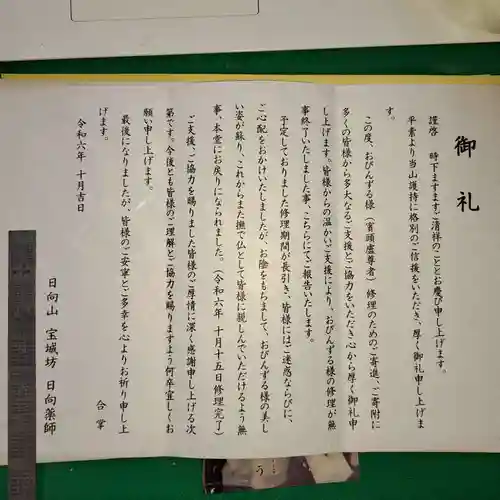 御礼
謹啓　時下ますますご清祥のこととお慶び申し上げます。
平素より当山護持に格別のご信援をいただき、厚く御礼申し上げま
す。
この度、おびんずる様（賓頭盧尊者）修理のためのご寄進、ご寄附に
多くの皆様から多大なるご支援とご協力をいただき心から厚く御礼申
し上げます。皆様からの温かいご支援により、おびんずる様の修理が無
事終了いたしました事、こちらにてご報告いたします。
予定しておりました修理期間が長引き、皆様にはご迷惑ならびに、
ご心配をおかけいたしましたが、お陰をもちまして、おびんずる様の美し
い姿が蘇り、これからまた撫で仏として皆様に親しんでいただけるよう無
事、本堂にお戻りになられました。（令和六年　十月十五日修理完了）
ご支援、ご協力を賜りました皆様のご厚情に深く感謝申し上げる次
第です。今後とも皆様のご理解とご協力を賜りますよう何卒宜しくお
願い申し上げます。
最後になりましたが、皆様のご安寧とご多幸を心よりお祈り申し上
げます。
合掌
令和六年　十月吉日
日向山　宝城坊　日向薬師
う